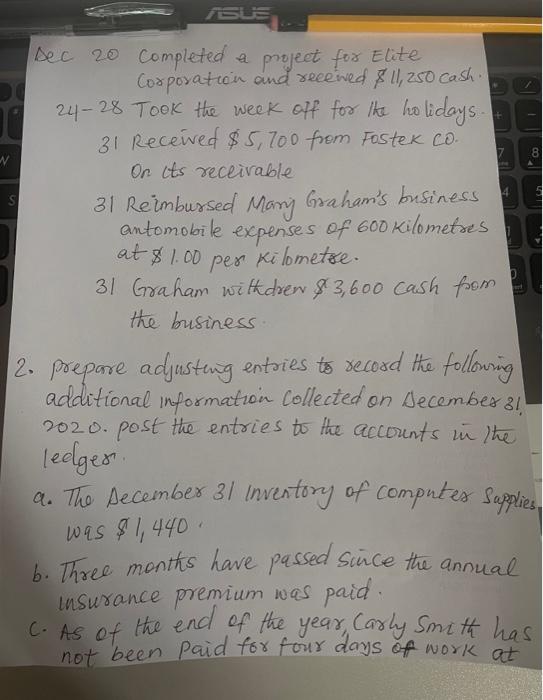 ASUS
Dec 20 Completed a project for Elite
Corporation and received $11,250 cash.
24-28 Took the week off for the holidays.
31 Received $5,700 from Fostek CO.
On its receivable
31 Reimbursed Mary Graham's business
automobile expenses of 600 kilometres
at $1.00 per kilometre.
31 Graham withdrew $3,600 cash from
the business.
2. prepare adjusting entries to record the following
additional information collected on December 31,
2020. post the entries to the accounts in the
ledger.
a. The December 31 inventory of computer Supplies
was $1,440.
b. Three months have passed since the annual
insurance premium was paid.
C. As of the end of the year, Carly Smith has
not been paid for four days of work at